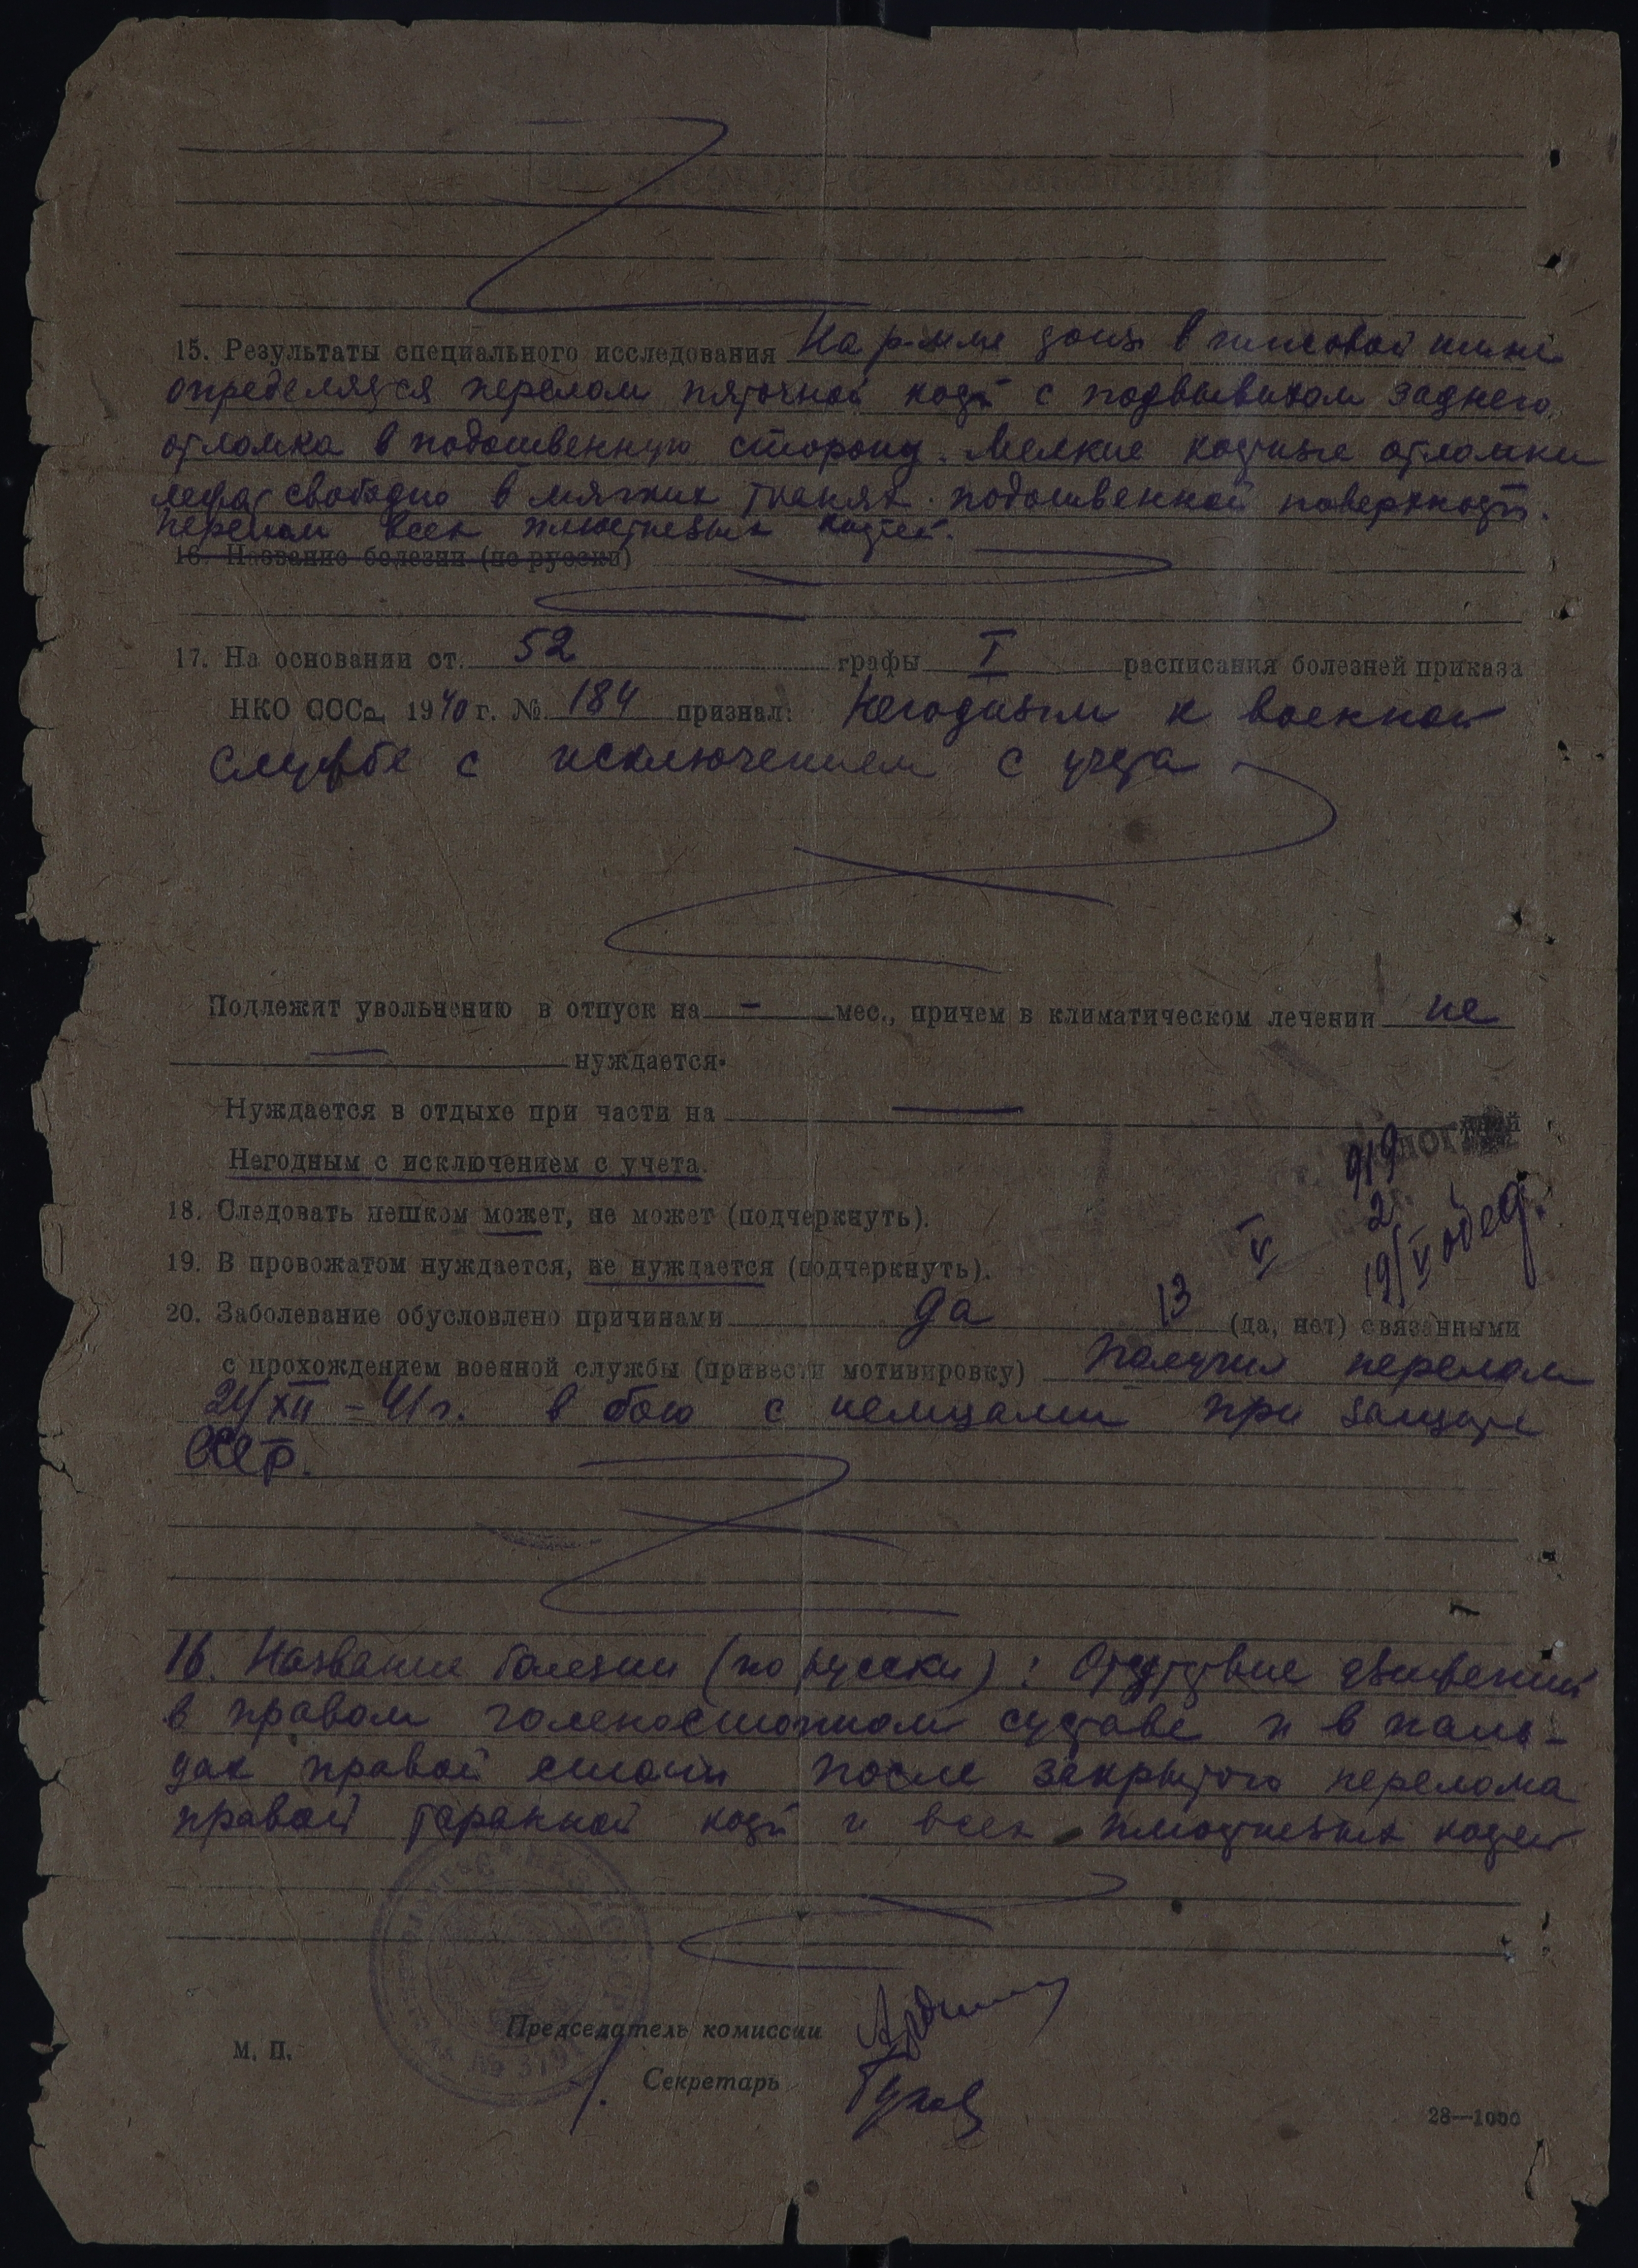 15. Результаты специального исследования На р-мме в гипсовой шине
определяется перелом пяточной кости с подвывихом заднего
отломка в подошвенную сторону. Мелкие костные отломки
лежат свободно в мягких тканях подошвенной поверхности.
перелом всех плюстневых костей.
16. Название болезни (по русски)
17. На основании ст. 52 графы I расписания болезней приказа
НКО СССР 1940 г. № 184 признал: Негодным к военной
службе с исключением с учета
Подлежит увольнению в отпуск на — мес., причем в климатическом лечении не
— нуждается.
Нуждается в отдыхе при части на — дней
Негодным с исключением с учета.
919
2
18. Следовать пешком может, не может (подчеркнуть).
V
19/V обед.
19. В провожатом нуждается, не нуждается (подчеркнуть).
13
20. Заболевание обусловлено причинами да (да, нет) связанными
с прохождением военной службы (привести мотивировку) Получил перелом
24/XII – 41 г. в бою с немцами при защите
СССР.
16. Название болезни (по русски): Отсутствие движений
в правом голеностопном суставе и в паль-
цах правой стопы после закрытого перелома
правой таранной кости и всех плюстневых костей
Председатель комиссии
М. П.
Секретарь
28—1000